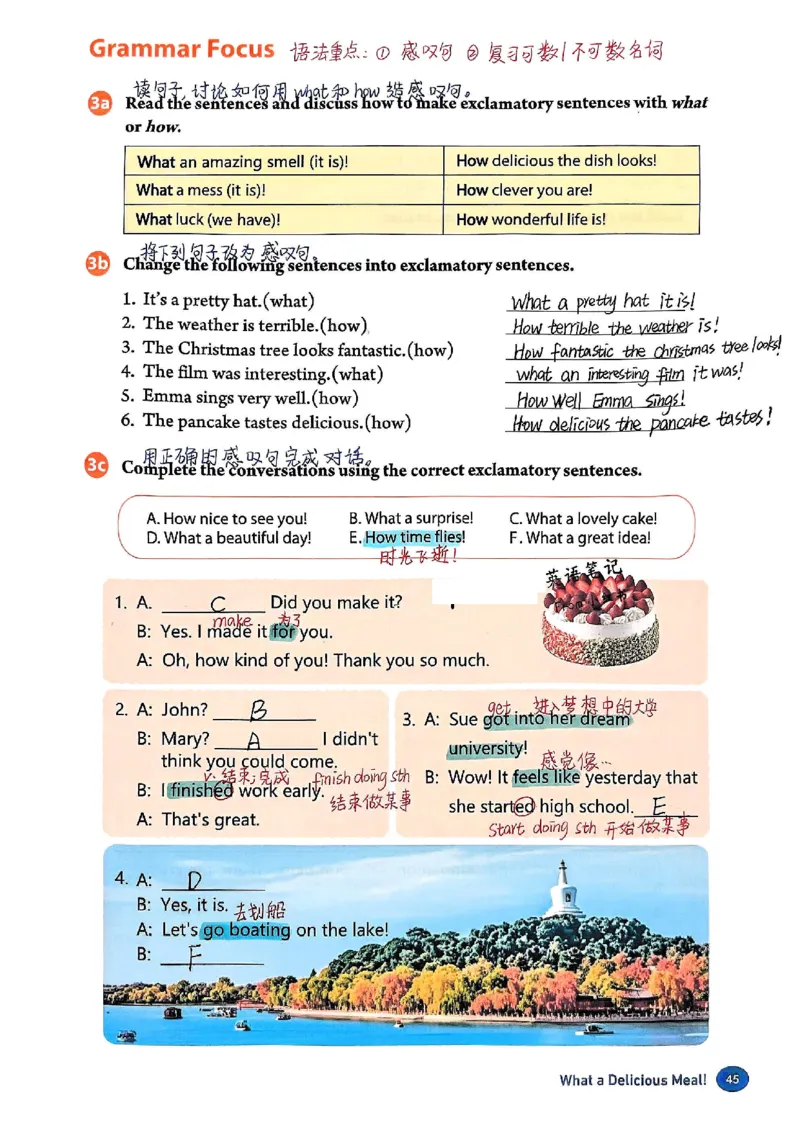 Grammar Focus 语法重点: ① 感叹句 ② 复习可数/不可数名词
读句子,讨论如何用 what 和 how 造感叹句。
3a Read the sentences and discuss how to make exclamatory sentences with what
or how.
What an amazing smell (it is)! How delicious the dish looks!
What a mess (it is)! How clever you are!
What luck (we have)! How wonderful life is!
将下列句子改为感叹句。
3b Change the following sentences into exclamatory sentences.
1. It's a pretty hat.(what) What a pretty hat it is!
2. The weather is terrible.(how) How terrible the weather is!
3. The Christmas tree looks fantastic.(how) How fantastic the christmas tree looks!
4. The film was interesting.(what) what an interesting film it was!
5. Emma sings very well.(how) How Well Emma sings!
6. The pancake tastes delicious.(how) How delicious the pancake tastes!
用正确的感叹句完成对话。
3c Complete the conversations using the correct exclamatory sentences.
A. How nice to see you! B. What a surprise! C. What a lovely cake!
D. What a beautiful day! E. How time flies! F. What a great idea!
时光飞逝!
英语笔记
1. A. C Did you make it?
make 为了
B: Yes. I made it for you.
A: Oh, how kind of you! Thank you so much.
2. A: John? B
B: Mary? A I didn't
think you could come.
v. 结束;完成 finish doing sth
B: I finished work early. 结束做某事
A: That's great.
get 进入梦想中的大学
3. A: Sue got into her dream
university!
感觉像…
B: Wow! It feels like yesterday that
she started high school. E
start doing sth 开始做某事
4. A: D
B: Yes, it is. 去划船
A: Let's go boating on the lake!
B: F
What a Delicious Meal! 45